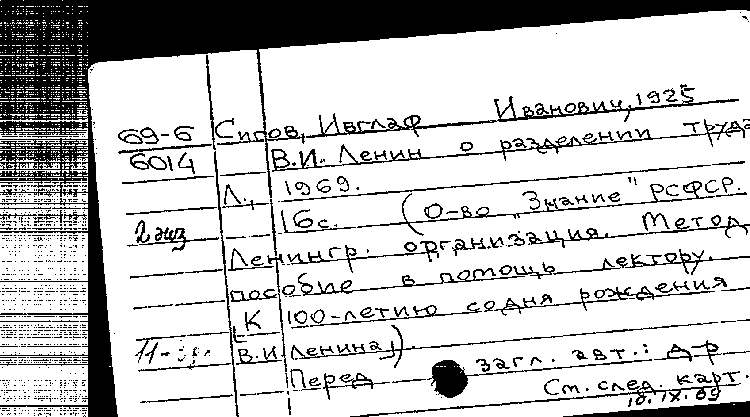 69-6 Сигов, Ивглаф Иванович, 1925
6014 В.И. Ленин о разделении труда
Л., 1969.
2 экз 16с. (О-во "Знание" РСФСР.
Ленингр. организация. Метод.
пособие в помощь лектору.
[К 100-летию со дня рождения
В.И. Ленина]).
Перед загл. авт.: д-р
См. след. карт.